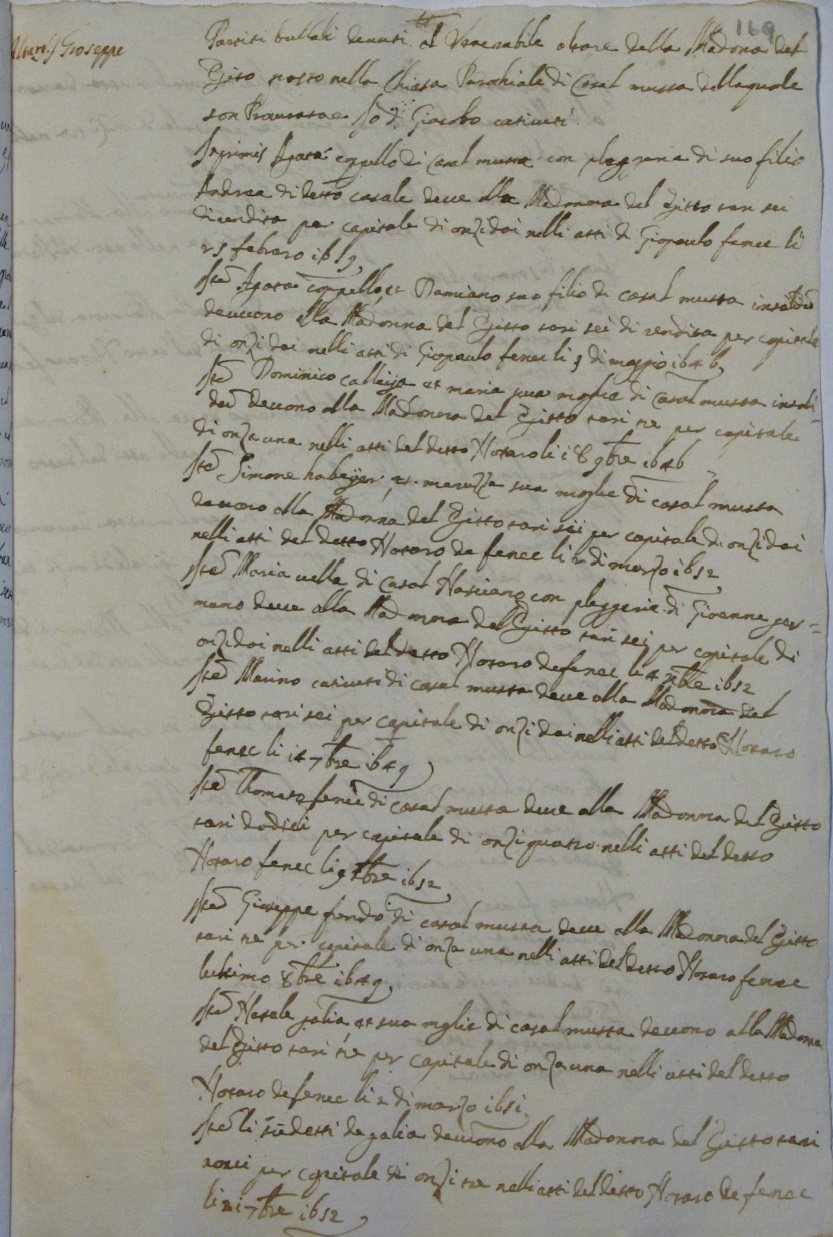 169
Gioseppe
Partiti bullali deuuti al Venerabile altare della Madona del
Zjito posto nella Chiesa Parochiale di Casal mussa dellaquale
son Procuratore Io di Giacobo catiueri
Inprimis Agata coppello di Casal mussa con pleggeria di suo filio
Andrea di detto casale deue alla Madonna del Zjitto tari sei
di rendita per capitale di onzi doi nelli atti di Giopaulo fenec li
25 febraro 1659
Ite Agata coppello, et Damiano suo filio di casal mussa insolidu
deuuono alla Madonna del Zjitto tari sei di rendita per capitale
di onzi doi nelli atti di Giopaulo fenec li 9 di maggio 1646
Ite Dominico calleija et maria sua moglie di Casal mussa insoli-
du deuono alla Madonna del Zjitto tari tre per capitale
di onza una nelli atti del detto Notaro li 18 9bre 1646
Ite Simone habejer, et maruzza sua moglie di casal mussa
deuono alla Madonna del Zjitto tari sei per capitale di onzi doi
nelli atti del detto Notaro de fenec li 2 di marzo 1652
Ite Maria uella di Casal Nasciaro con pleggeria di Gioanne ger=
mano deue alla Madonna del Zjitto tari sei per capitale di
onzi doi nelli atti del detto Notaro de fenec li 4 xbre 1652
Ite Marino catiueri di casal mussa deue alla Madonna del
Zjitto tari sei per capitale di onzi doi nelli atti del detto Notaro
fenec li 14 7bre 1649
Ite Thomaso fenec di casal mussa deue alla Madonna del Zjitto
tari dodici per capitale di onzi quatro nelli atti del detto
Notaro fenec li 9 xbre 1652
Ite Gioseppe fendo di casal mussa deue alla Madonna del Zjitto
tari tre per capitale di onza una nelli atti del detto Notaro fenec
lultimo 8bre 1649
Ite Natale galia et sua moglie di casal mussa deuono alla Madonna
del Zjitto tari tre per capitale di onza una nelli atti del detto
Notaro de fenec li 2 di marzo 1651
Ite li sudetti de galia deuuono alla Madonna del Zjitto tari
noui per capitale di onzi tre nelli atti del detto Notaro de fenec
li 21 7bre 1652